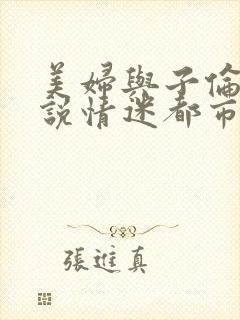 美婦與子倫
說情迷都市
張進真